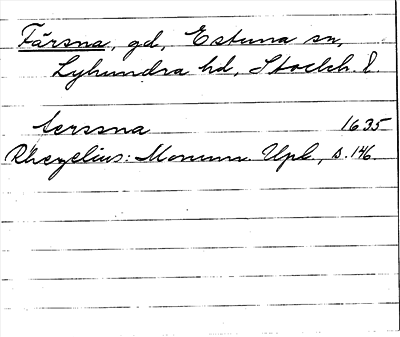 Färsna, gd, Estuna sn,
Lyhundra hd, Stockh. l.
ferssna 1635
Rhezelius: Monum Upl., s. 146.